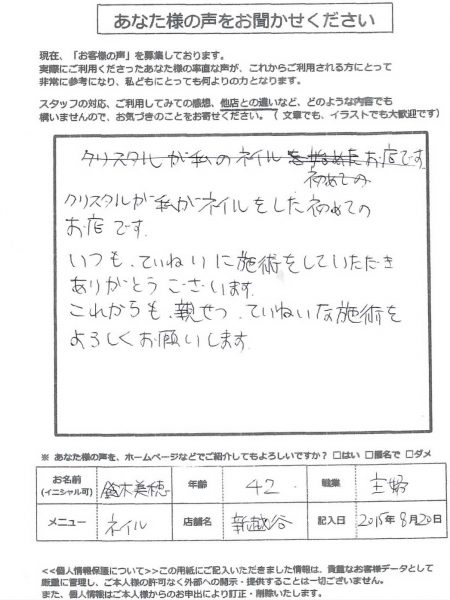 あなた様の声をお聞かせください
現在、「お客様の声」を募集しております。
実際にご利用くださったあなた様の率直な声が、これからご利用される方にとって
非常に参考になり、私どもにとっても何よりの力となります。
スタッフの対応、ご利用してみての感想、他店との違いなど、どのような内容でも
構いませんので、お気づきのことをお寄せください。（文章でも、イラストでも大歓迎です）
クリスタルが私のネイルを始めたお店です
初めての
クリスタルが私がネイルをした初めての
お店です。
いつも、ていねいに施術をしていただき
ありがとうございます。
これからも、親せつ、ていねいな施術を
よろしくお願いします。
※ あなた様の声を、ホームページなどでご紹介してもよろしいですか？ □はい □匿名で □ダメ
お名前（イニシャル可） 鈴木美穂 年齢 42 職業 主婦
メニュー ネイル 店舗名 新越谷 記入日 2015年8月20日
<<個人情報保護について>>この用紙にご記入いただきました情報は、貴重なお客様データとして
厳重に管理し、ご本人様の許可なく外部への開示・提供することは一切ございません。
また、個人情報はご本人様からのお申出により訂正・削除いたします。